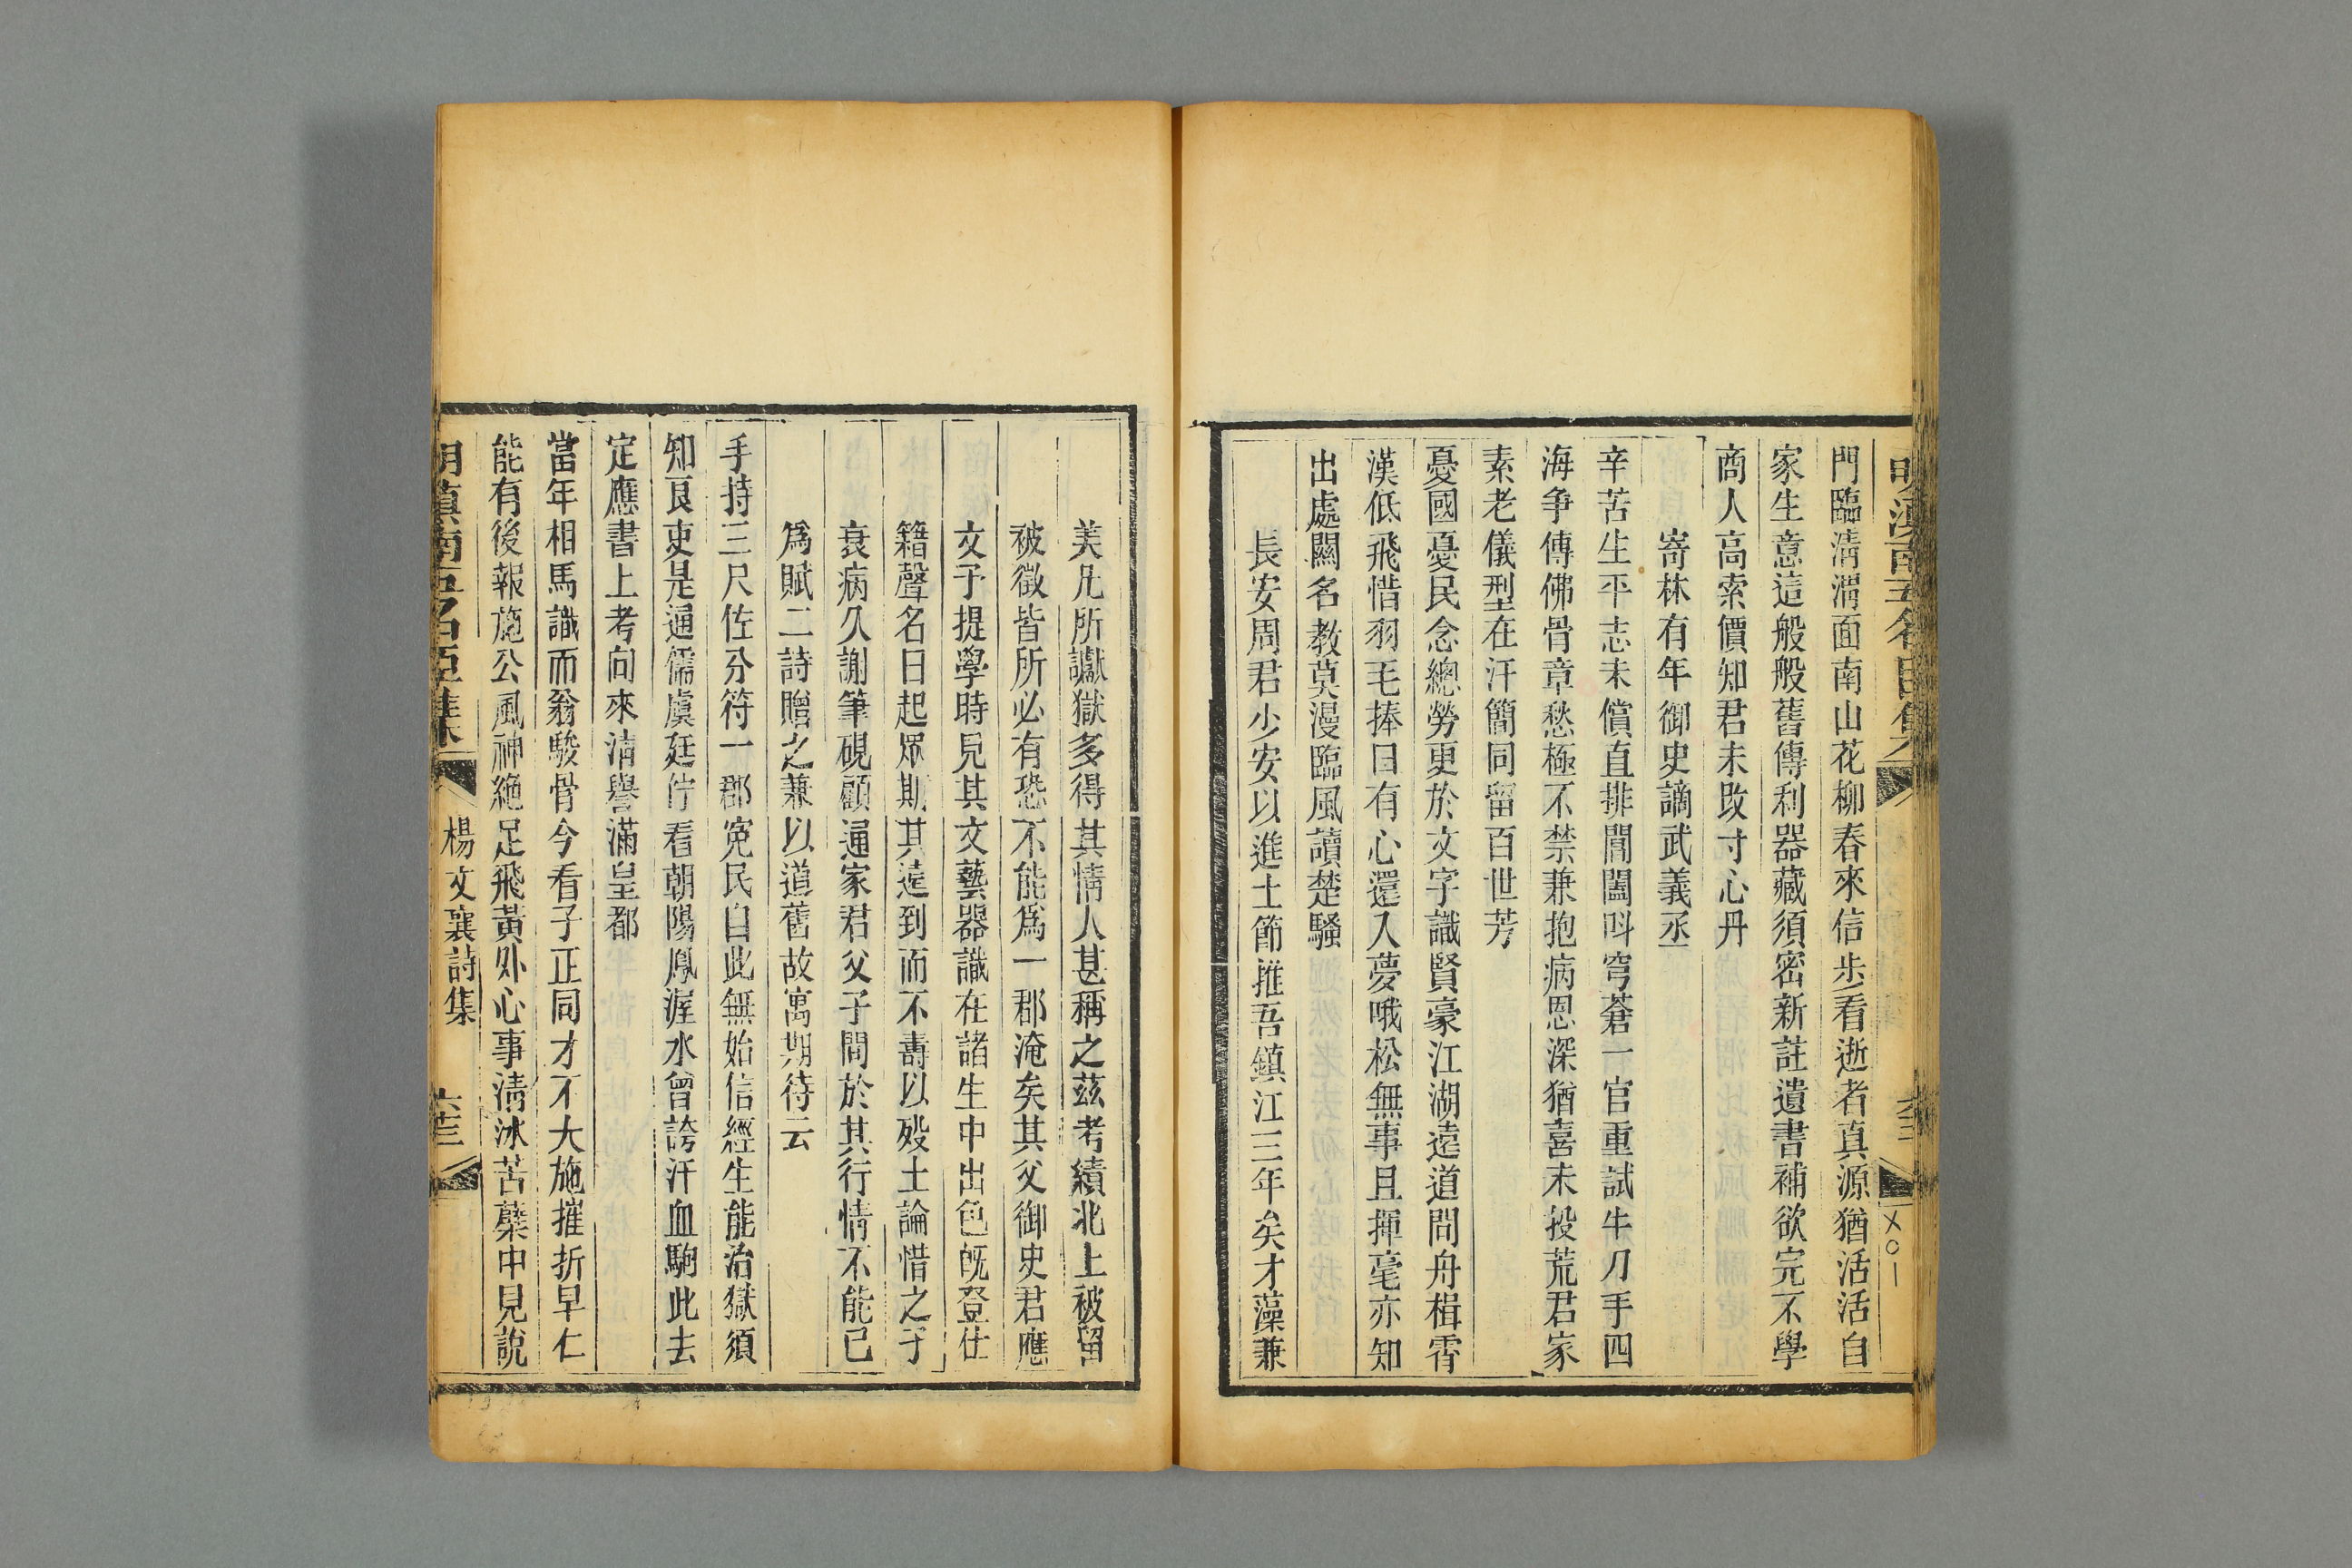 門臨淸渭面南山花柳春來信步看逝者真源猶活活自
家生意這般般舊傳利器藏須密新註遺書補欲完不學
商人高索價知君未改寸心丹
寄林有年御史謫武義丞
辛苦生平志未償直排閶闔呌穹蒼一官重試牛刀手四
海爭傳佛骨章愁極不禁兼抱病恩深猶喜未投荒君家
素老儀型在汗簡同留百世芳
憂國憂民念總勞更於文字識賢豪江湖遠道問舟楫霄
漢低飛惜羽毛捧日有心還入夢哦松無事且揮毫亦知
出處關名教莫漫臨風讀楚騷
長安周君少安以進士節推吾鎮江三年矣才藻兼
美凡所讞獄多得其情人甚稱之茲考績北上被留
被徵皆所必有恐不能爲一郡淹矣其父御史君應
文予提學時見其文藝器識在諸生中出色旣登仕
籍聲名日起眾期其遠到而不壽以歿士論惜之于
衰病久謝筆硯顧通家君父子間於其行情不能已
爲賦二詩贈之兼以道舊故寓期待云
手持三尺佐分符一郡寃民自此無始信經生能治獄須
知良吏是通儒虞廷佇看朝陽鳳渥水曾誇汗血駒此去
定應書上考向來淸譽滿皇都
當年相馬識而翁駿骨今看子正同才不大施摧折早仁
能有後報施公風神絶足飛黃外心事淸冰苦蘗中見說
明滇南五名臣集 楊文襄詩集 六三